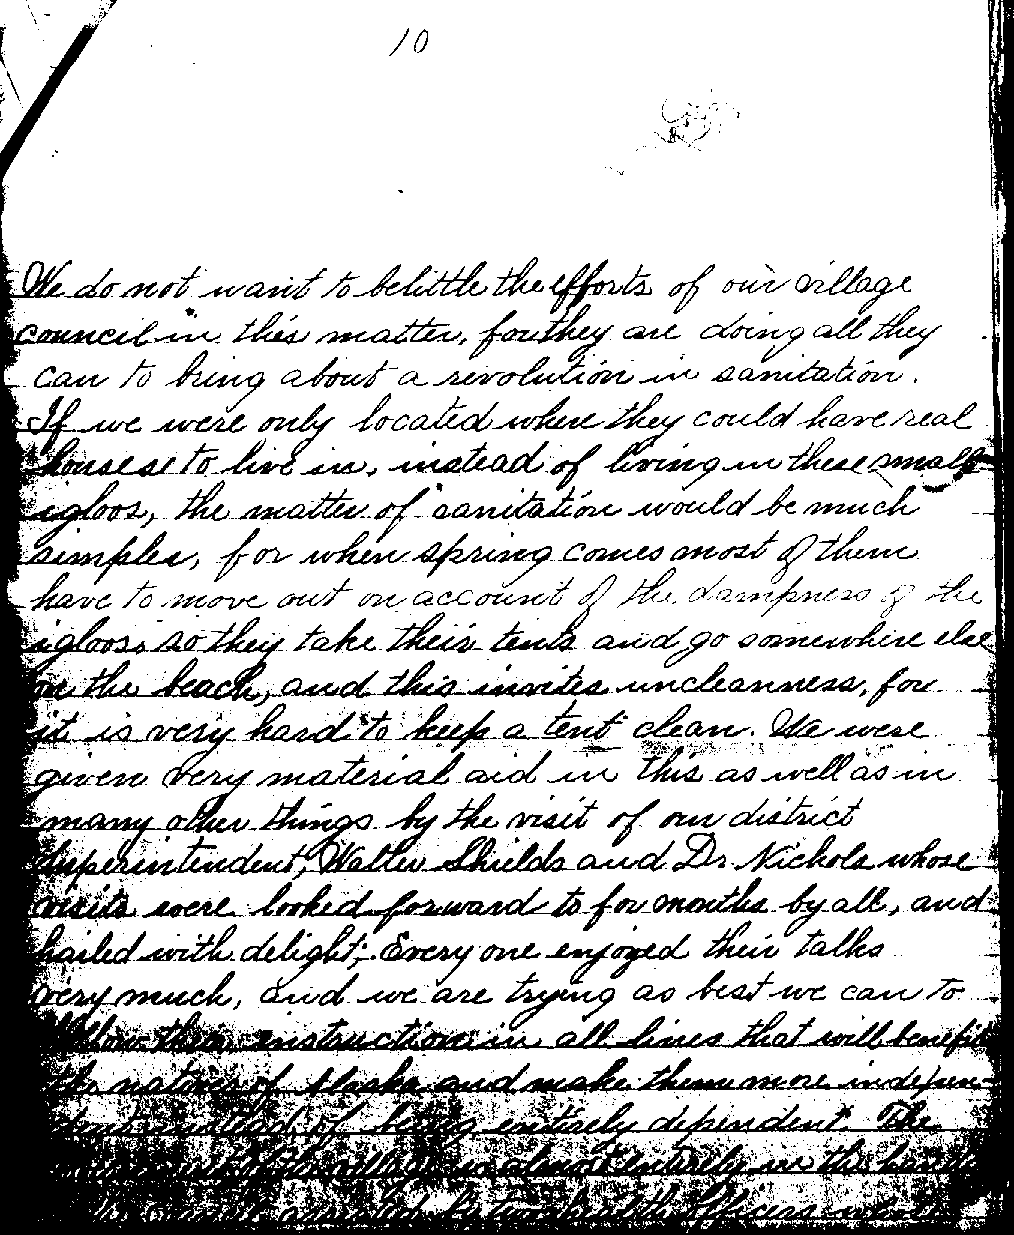 10
We do not want to belittle the efforts of our village
council in this matter, for they are doing all they
can to bring about a revolution in sanitation.
If we were only located where they could have real
houses to live in, instead of living in these small
igloos, the matter of sanitation would be much
simpler, for when spring comes most of them
have to move out on account of the dampness of the
igloos, so they take their tents and go somewhere else
on the beach, and this invites uncleanness, for
it is very hard to keep a tent clean. We were
given very material aid in this as well as in
many other things by the visit of our district
Superintendent, Walter Shields and Dr Nichols whose
visits were looked forward to for months by all, and
hailed with delight; Every one enjoyed their talks
very much, and we are trying as best we can to
follow their instructions in all lines that will benefit
the natives of Alaska and make them more indepen-
dent instead of being entirely dependent. The
of the village is almost entirely in the hands
assisted by two health officers